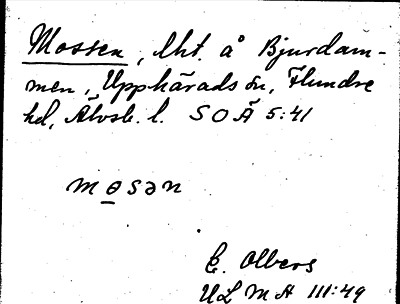 Mossen, lht. å Bjurdam-
men, Upphärads sn, Flundre
hd, Älvsb. l. SOÄ 5:41
mɵsən
E. Olbers
ULMA 111:49